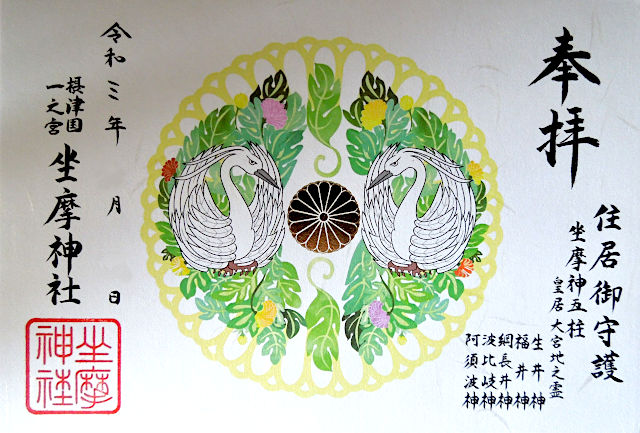 奉拝
住居御守護
坐摩神五柱
皇居大宮地之霊
生井神
福井神
綱長井神
波比岐神
阿須波神
令和三年 月 日
摂津国
一之宮
坐摩神社
坐摩
神社